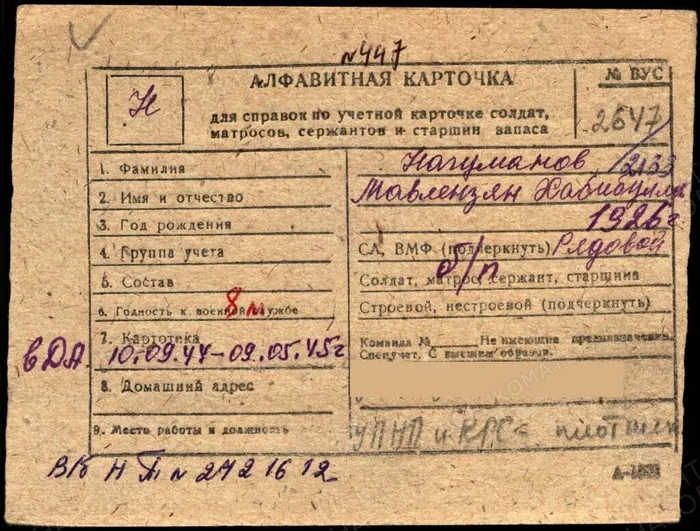 №447
АЛФАВИТНАЯ КАРТОЧКА
№ ВУС
Н
для справок по учетной карточке солдат,
матросов, сержантов и старшин запаса
2647/2133
1. Фамилия Нагуманов
2. Имя и отчество Мавлензян Хабибулл
3. Год рождения 1926 г
4. Группа учета СА, ВМФ (подчеркнуть) Рядовой
5. Состав Солдат, матрос, сержант, старшина
б/п
6. Годность к военной службе Строевой, нестроевой (подчеркнуть)
8 м
7. Картотека Команда № Не имеющие предназначения.
Спецучет. С высшим образов.
в ДА 10.09.44-09.05.45г
8. Домашний адрес
9. Место работы и должность УПНП и КРС плотник
ВБ Н П № 2421612